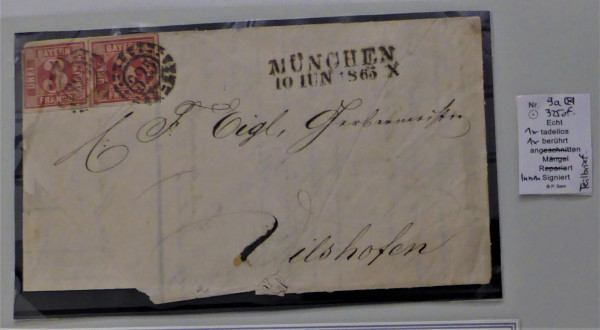 BAYERN
DREI
3
BAYERN
MÜNCHEN
10 IUN 1865 X
F. Eigl, Gerbermeister
Vilshofen
Nr. 9a
Echt
1x tadellos
1x berührt
angeschnitten
Mängel
Repariert
Signiert
Teilbrief